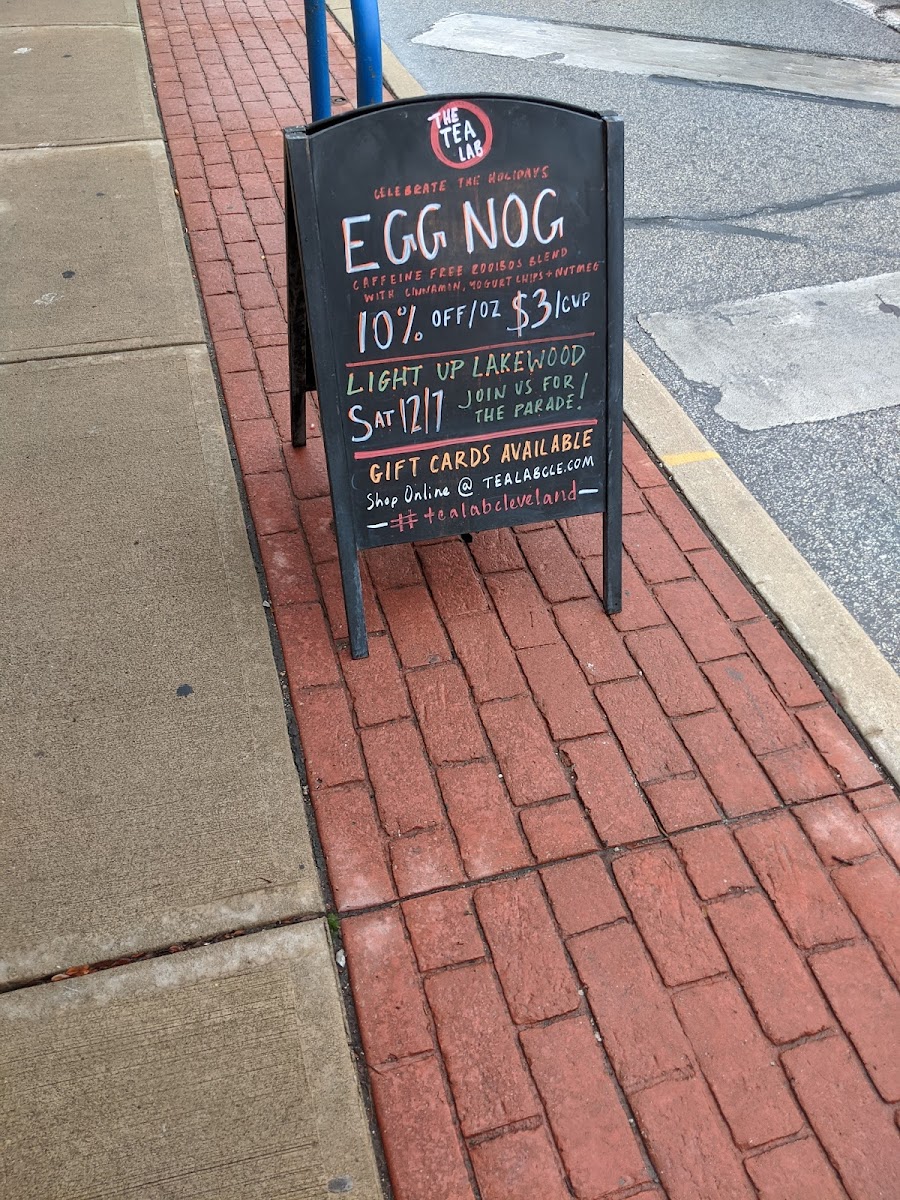 THE
TEA
LAB
CELEBRATE THE HOLIDAYS
EGG NOG
CAFFEINE FREE ROOIBOS BLEND
WITH CINNAMIN, YOGURT CHIPS + NUTMEG
10% OFF/OZ $3/CUP
LIGHT UP LAKEWOOD
SAT 12/7 JOIN US FOR
THE PARADE!
GIFT CARDS AVAILABLE
Shop Online @ TEALABCLE.COM
- #tealabcleveland -